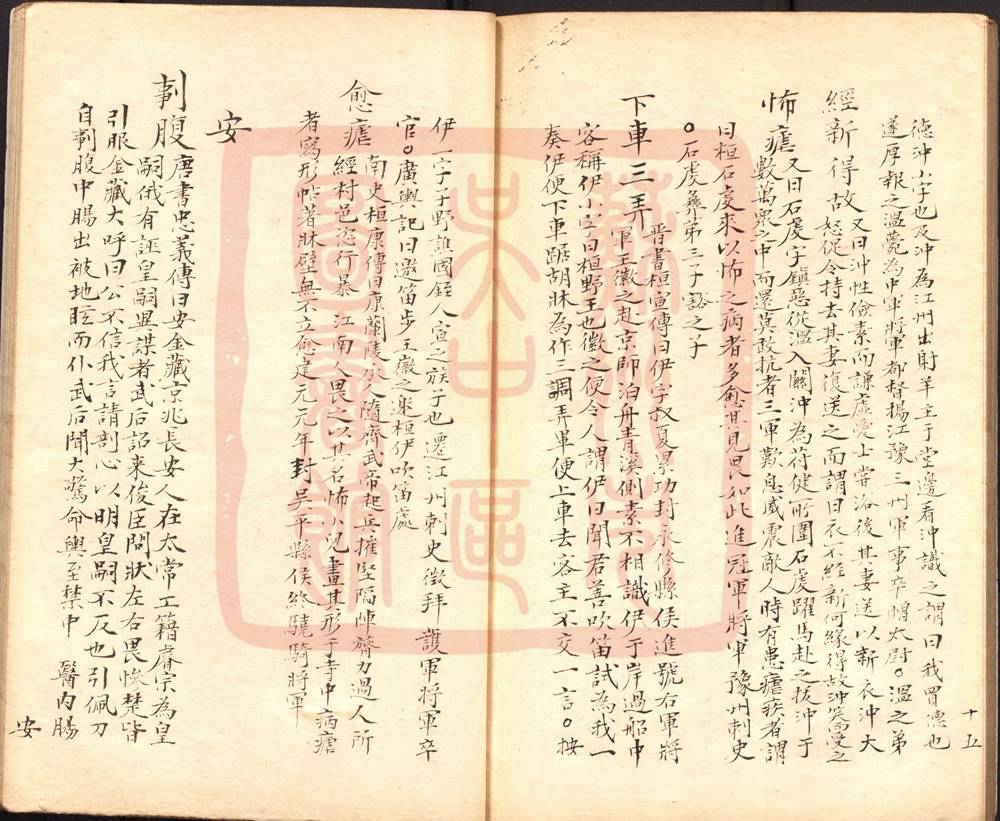 德沖小字也及沖為江州出射羊主于堂邊看沖識之謂曰我買德也
遂厚報之溫薨為中軍將軍都督揚江豫三州軍事卒贈太尉○溫之弟
經新得故 又曰沖性儉素而謙虛愛士嘗浴後其妻送以新衣沖大
怒促令持去其妻復送之而謂曰衣不經新何緣得故沖笑而受之
怖瘧 又曰石虔字鎮惡從溫入關沖為苻健所圍石虔躍馬赴之拔沖于
數萬眾之中而還莫敢抗者三軍歎息威震敵人時有患瘧疾者謂
曰桓石虔來以怖之病者多愈其見畏如此進冠軍將軍豫州刺史
○石虔彝第三子豁之子
下車三弄 晉書桓宣傳曰伊字叔夏累功封永修縣侯進號右軍將
軍王徽之赴京師泊舟青溪側素不相識伊于岸過船中
客稱伊小字曰桓野王也徽之便令人謂伊曰聞君善吹笛試為我一
奏伊便下車踞胡牀為作三調弄畢便上車去客主不交一言○按
十五
伊一字子野譙國銍人宣之族子也遷江州刺史徵拜護軍將軍卒
官○廣輿記曰邀笛步王徽之邀桓伊吹笛處
愈瘧 南史桓康傳曰康蘭陵承人隨齊武帝起兵摧堅陷陣膂力過人所
經村邑恣行暴 江南人畏之以其名怖小兒畫其形于寺中病瘧
者寫形帖著牀壁無不立愈建元元年封吳平縣侯終驍騎將軍
安
剚腹 唐書忠義傳曰安金藏京兆長安人在太常工籍睿宗為皇
嗣俄有誣皇嗣異謀者武后詔來俊臣問狀左右畏慘楚皆
引服金藏大呼曰公不信我言請剖心以明皇嗣不反也引佩刀
自剚腹中腸出被地眩而仆武后聞大驚命輿至禁中 醫內腸
安